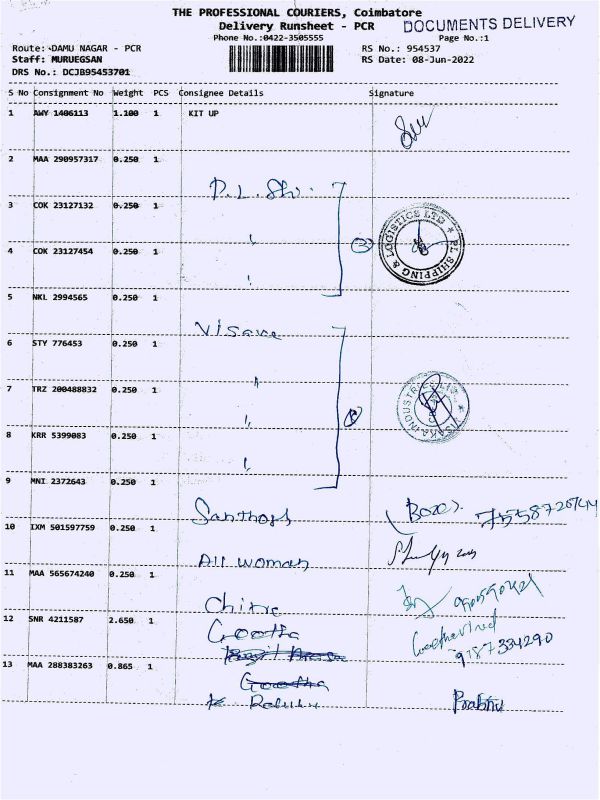 THE PROFESSIONAL COURIERS, Coimbatore
Delivery Runsheet - PCR
DOCUMENTS DELIVERY
Phone No.:0422-3505555
Page No.:1
Route: DAMU NAGAR - PCR
RS No.: 954537
Staff: MURUEGSAN
RS Date: 08-Jun-2022
DRS No.: DCJB95453701
S No Consignment No Weight PCS Consignee Details Signature
1 AWY 1406113 1.100 1 KIT UP
2 MAA 290957317 0.250 1
P.L. Sh.
3 COK 23127132 0.250 1
PL SHIPPING & LOGISTICS LTD
3
4 COK 23127454 0.250 1
5 NKL 2994565 0.250 1
Visaka
6 STY 776453 0.250 1
7 TRZ 200488832 0.250 1
VISAKA INDUSTRIES LTD
8 KRR 5399083 0.250 1
9 MNI 2372643 0.250 1
Santhosh
10 IXM 501597759 0.250 1
All woman
11 MAA 565674240 0.250 1
Chitra
12 SNR 4211587 2.650 1
Geetha
9787334290
13 MAA 288383263 0.865 1
Geetha
Prabhu